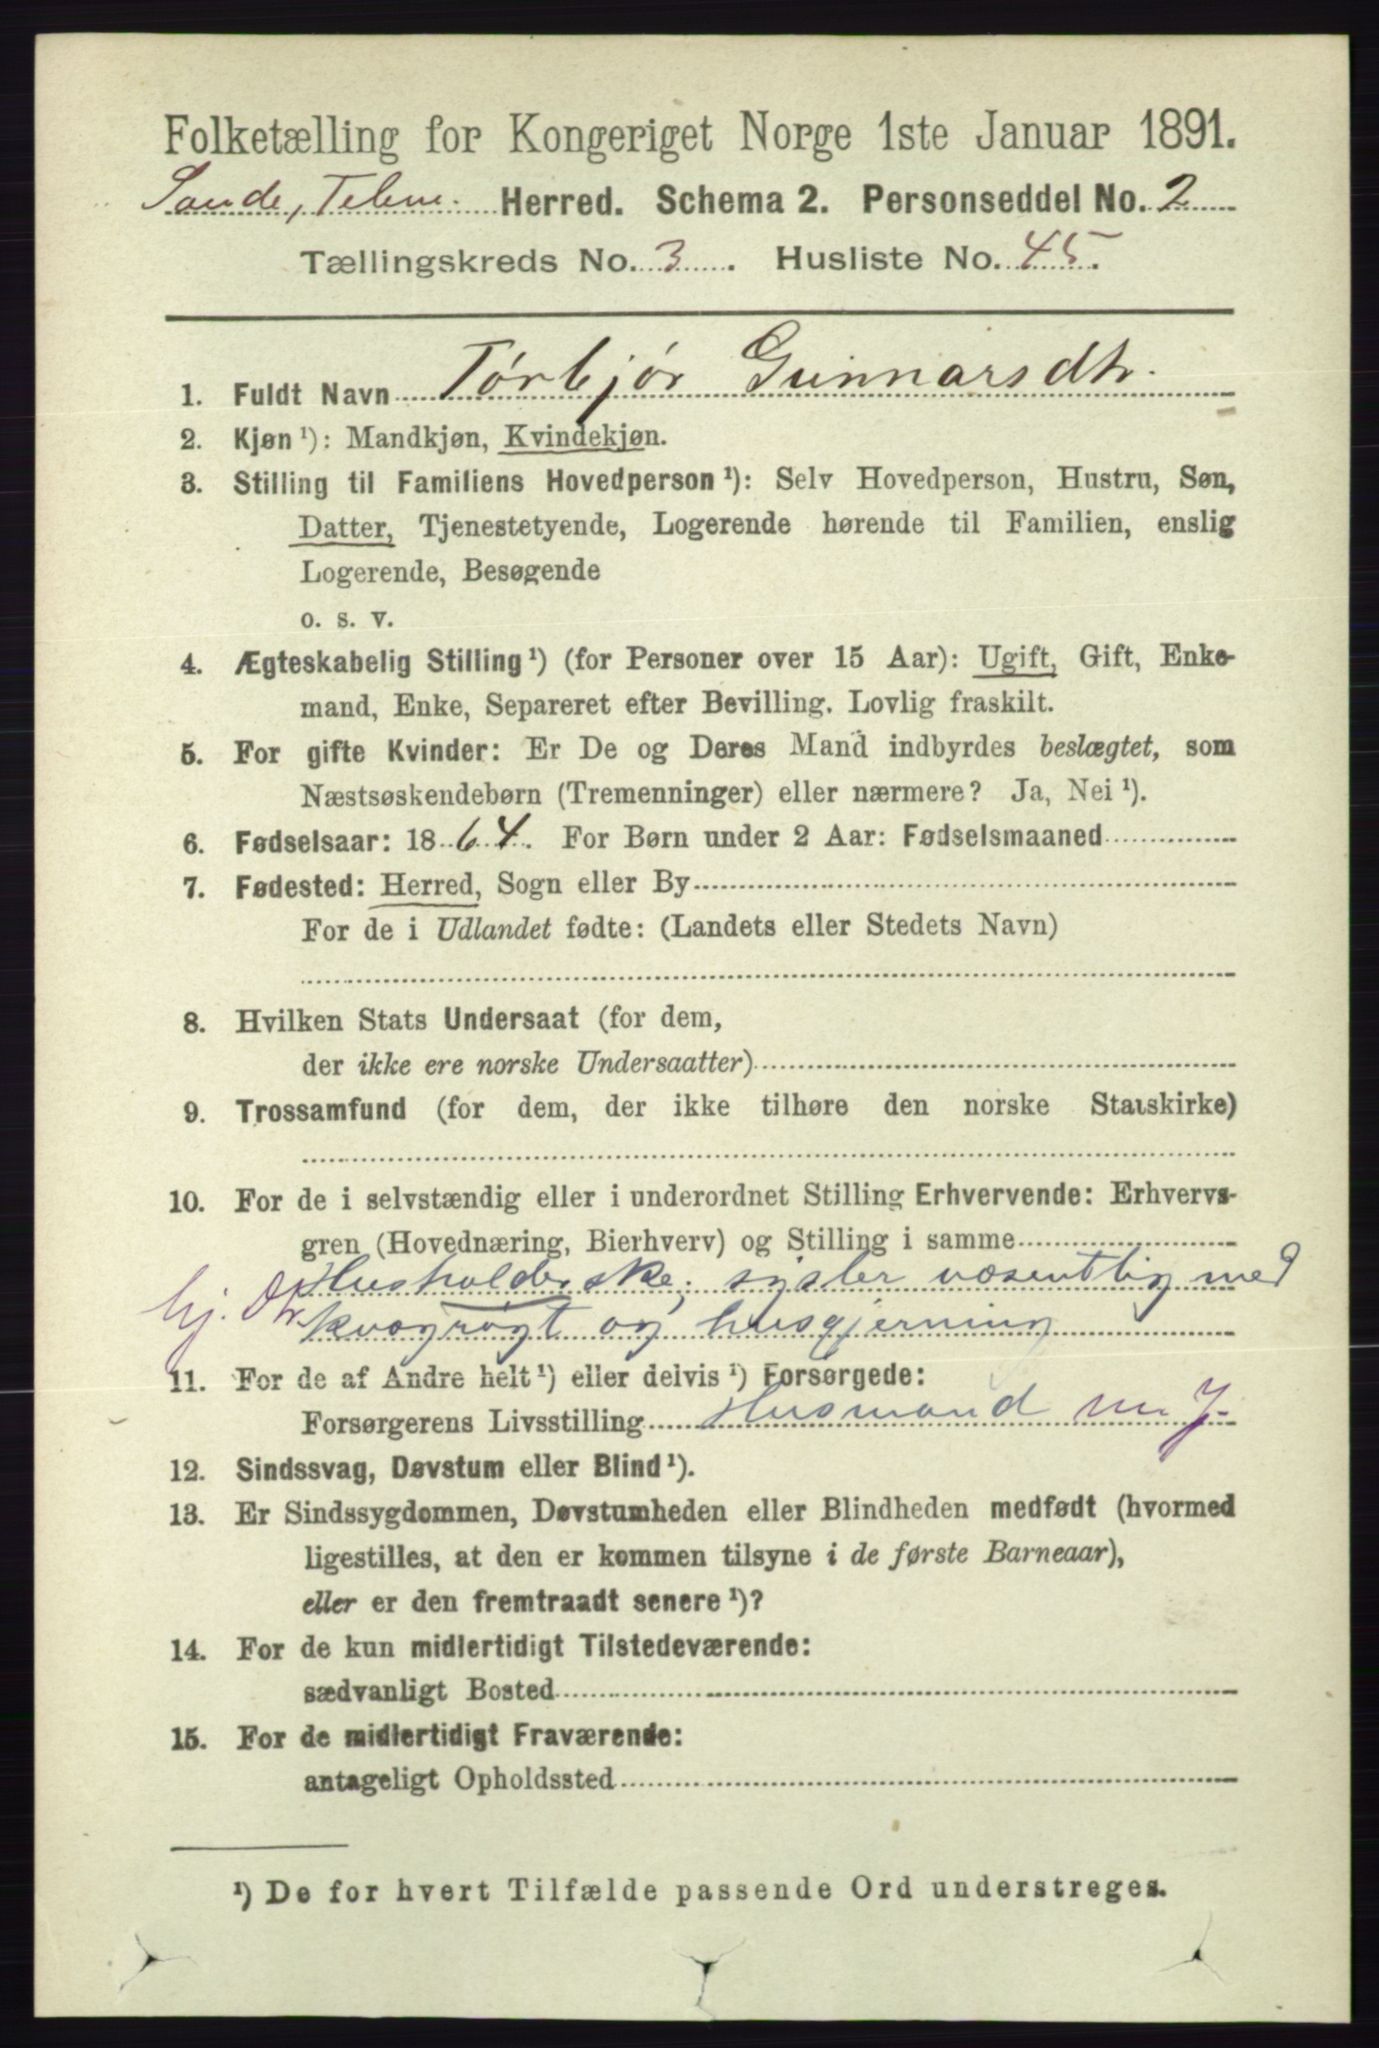 Folketælling for Kongeriget Norge 1ste Januar 1891.
Herred. Schema 2. Personseddel No. 2
Tællingskreds No. 3. Husliste No. 45.
1. Fuldt Navn Tørbjør Gunnarsdtr.
2. Kjøn ¹): Mandkjøn, Kvindekjøn.
3. Stilling til Familiens Hovedperson ¹): Selv Hovedperson, Hustru, Søn,
Datter, Tjenestetyende, Logerende hørende til Familien, enslig
Logerende, Besøgende
o. s. v.
4. Ægteskabelig Stilling ¹) (for Personer over 15 Aar): Ugift, Gift, Enke-
mand, Enke, Separeret efter Bevilling. Lovlig fraskilt.
5. For gifte Kvinder: Er De og Deres Mand indbyrdes beslægtet, som
Næstsøskendebørn (Tremenninger) eller nærmere? Ja, Nei ¹).
6. Fødselsaar: 1864. For Børn under 2 Aar: Fødselsmaaned
7. Fødested: Herred, Sogn eller By
For de i Udlandet fødte: (Landets eller Stedets Navn)
8. Hvilken Stats Undersaat (for dem,
der ikke ere norske Undersaatter)
9. Trossamfund (for dem, der ikke tilhøre den norske Statskirke)
10. For de i selvstændig eller i underordnet Stilling Erhvervende: Erhvervs-
gren (Hovednæring, Bierhverv) og Stilling i samme
Husholderske; sysler væsentlig med
hj. Dtr. kvægrøgt og husgjerning
11. For de af Andre helt ¹) eller delvis ¹) Forsørgede:
Forsørgerens Livsstilling Husmand m. J.
12. Sindssvag, Døvstum eller Blind ¹).
13. Er Sindssygdommen, Døvstumheden eller Blindheden medfødt (hvormed
ligestilles, at den er kommen tilsyne i de første Barneaar),
eller er den fremtraadt senere ¹)?
14. For de kun midlertidigt Tilstedeværende:
sædvanligt Bosted
15. For de midlertidigt Fraværende:
antageligt Opholdssted
¹) De for hvert Tilfælde passende Ord understreges.